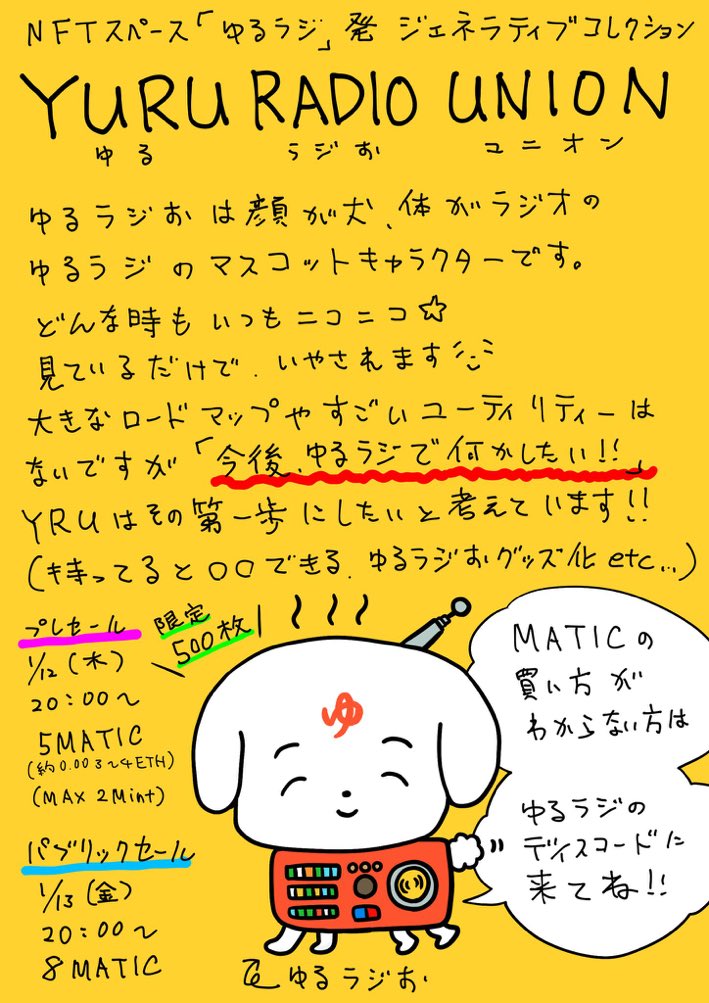 NFTスペース「ゆるラジ」発 ジェネラティブコレクション
YURU RADIO UNION
ゆる ラジお ユニオン
ゆるラジおは顔が犬、体がラジオの
ゆるラジのマスコットキャラクターです。
どんな時もいつもニコニコ☆
見ているだけで、いやされます
大きなロードマップやすごいユーティリティーは
ないですが「今後、ゆるラジで何かしたい!!」
YRUはその第一歩にしたいと考えています!!
(持ってると○○できる、ゆるラジおグッズ化etc...)
プレセール
限定
500枚
1/12(木)
20:00〜
5MATIC
(約0.003〜4ETH)
(MAX 2Mint)
パブリックセール
1/13(金)
20:00〜
8MATIC
ゆ
MATICの
買い方が
わからない方は
ゆるラジの
ディスコードに
来てね!!
ゆるラジお